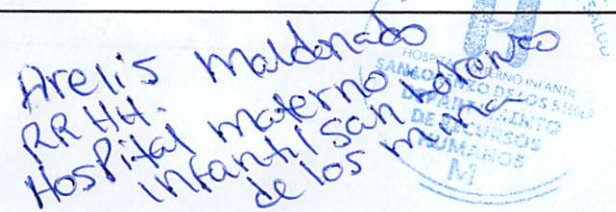 Arelis Maldonado
RRHH.
Hospital materno
infantil San Lorenzo
de los mina
HOSPITAL MATERNO INFANTIL
SAN LORENZO DE LOS MINA
DEPARTAMENTO
DE RECURSOS
HUMANOS